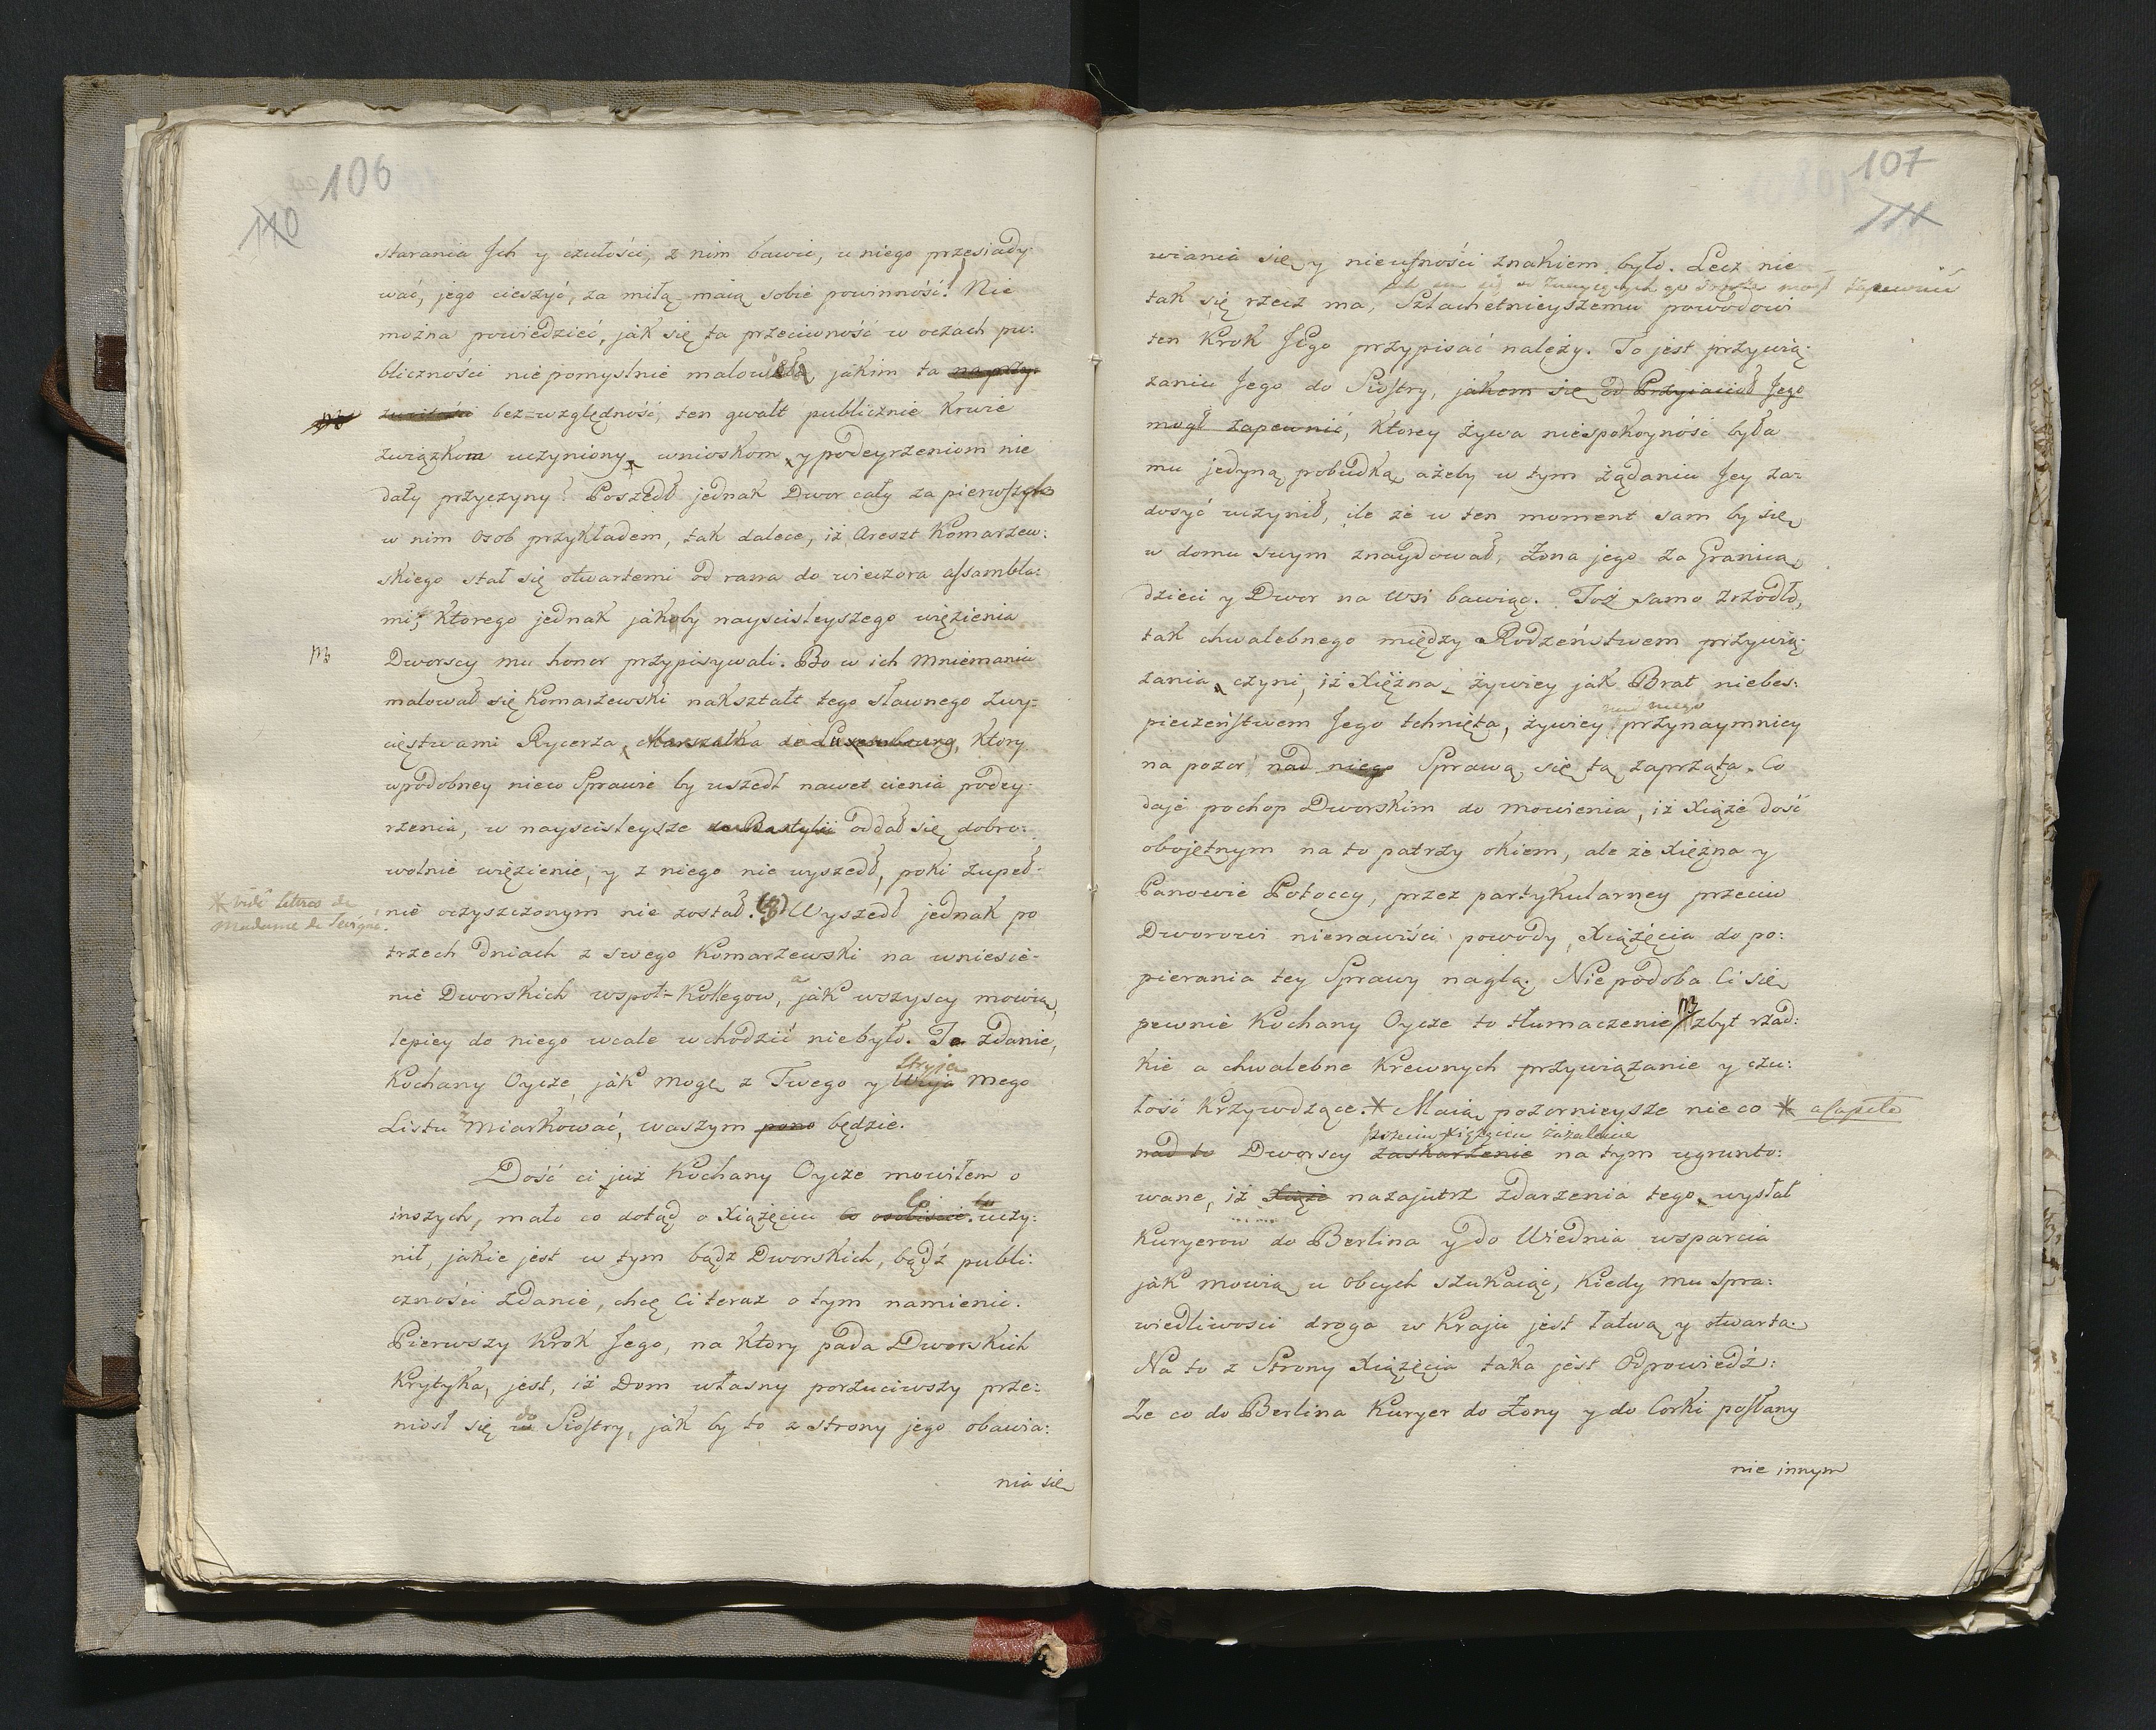 106
110
starania Jch y czułości, z nim bawić, u niego przesiady-
wać, jego cieszyć, za miłą maią sobie powinność! Nie
można powiedzieć, jak się ta przeciwność w oczach pu:
bliczności niepomyslnie malowała, jakim ta
bez-względność, ten gwałt publicznie Krwie
związkom uczyniony, wnioskom y podeyrzeniom nie
dały przyczyny! Poszedł jednak Dwor cały za pierwszych
w nim osob przykładem, tak dalece, iż Areszt Komarzew:
skiego stał się otwartemi od rana do wieczora assambla:
mi, Ktorego jednak jakoby nayscisleyszego więzienia
Dworscy mu honor przypisywali. Bo w ich mniemaniu
malował się Komarzewski nakształt tego sławnego zwy:
cięstwami Rycerza, Marszałka de Luxembourg, Ktory
w podobney niew Sprawie by uszedł nawet cienia podey-
rzenia, w nayscisleysze do Bastylii oddał się dobro:
wolnie więzienie, y z niego nie wyszedł, poki zupeł-
* vide lettres de
Madame de Sévigné.
nie oczyszczonym nie został. Wyszedł jednak po
trzech dniach z swego Komarzewski na wniesie-
nie Dworskich wspoł-Kollegow, a jak wszyscy mowią,
lepiey do niego wcale wchodzić niebyło. To zdanie,
Stryja
Kochany Oycze, jak mogę z Twego y Wuja mego
Listu miarkować, waszym pono będzie.
Dość ci już Kochany Oycze mowiłem o
Co tu
inszych, mało co dotąd o Xiążęciu co osobiscie uczy:
nił, jakie jest w tym bądz Dworskich, bądź publi:
czności zdanie, chcę Ci teraz o tym namienić.
Pierwszy Krok Jego, na Ktory pada Dworskich
Krytyka, jest, iż Dom własny porzuciwszy prze:
do
niosł się u Siostry, jak by to z strony jego obawia:
nia się
107
111
wiania się y nieufności znakiem było. Lecz nie
mogł zapewnić
tak się rzecz ma, Szlachetnieyszemu powodowi
ten Krok Jego przypisać należy. To jest przywią-
zaniu Jego do Siostry, jakem się od Przyjacioł Jego
mogł zapewnić, Ktorey żywa niespokoyność była
mu jedyną pobudką, ażeby w tym żądaniu Jey za:
dosyć uczynił, ile że w ten moment sam by się
w domu swym znaydował, Żona jego za Granicą,
dzieci y Dwor na Wsi bawiąc. Toż samo zrzodło,
tak chwalebnego między Rodzeństwem przywią:
zania, czyni, iż Xiężna, żywiey jak Brat niebes:
nad niego
pieczeństwem Jego tchnięta, żywiey przynaymniey
na pozor nad niego Sprawą się tą zaprząta. Co
daje pochop Dworskim do mowienia, iż Xiąże dość
obojętnym na to patrzy okiem, ale że Xiężna y
Panowie Potoccy, przez partykularney przeciw
Dworowi nienawiści powody, Xiążęcia do po:
pierania tey Sprawy naglą. Nie podoba Ci się
pewnie Kochany Oycze to tłumaczenie zbyt rzad:
kie a chwalebne Krewnych przywiązanie y czu:
łość Krzywdzące. * Maią pozornieysze nieco * a capite
przeciw Xiążęciu zażalenie
nad to Dworscy zaskarżenie na tym ugrunto:
wane, iż Xiąże nazajutrz zdarzenia tego, wysłał
Kuryerow do Berlina y do Wiednia wsparcia
jak mowią u obcych szukaiąc, Kiedy mu spra:
wiedliwosci droga w Kraju jest łatwa y otwarta.
Na to z Strony Xiążęcia taka jest Odpowiedź:
Ze co do Berlina Kuryer do Żony y do Corki posłany
nie innym